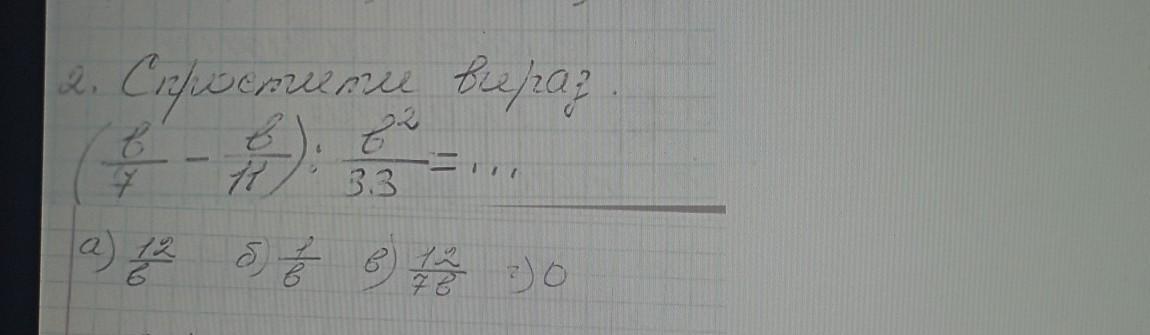 2. Спростити вираз.
(в/7 - в/11) : в²/33 = ...
а) 12/в б) 1/в в) 12/7в г) 0